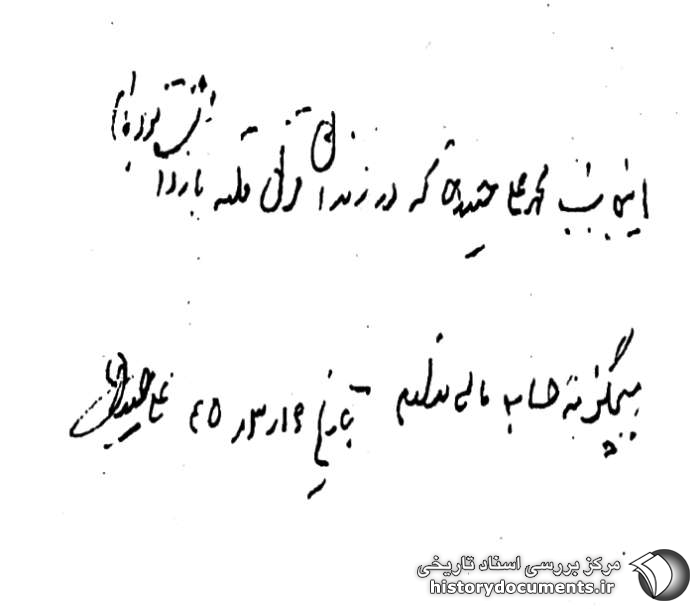 اینجانب محمدعلی حیدری که در زندان قزل قلعه بازداشت بوده‌ام
هیچگونه حساب مالی ندارم بتاریخ ۱۶ر۳ر۴۵
مرکز بررسی اسناد تاریخی
historydocuments.ir